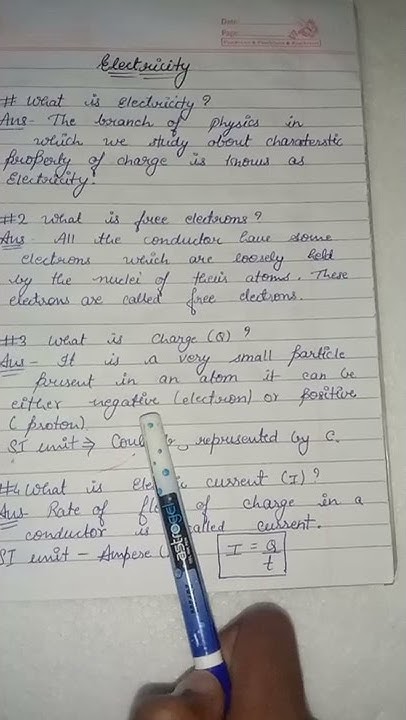 Date:
Page:
Electricity
# What is electricity ?
Ans- The branch of physics in
which we study about charaterstic
property of charge is known as
Electricity.
#2 What is free electrons ?
Ans- All the conductor have some
electrons which are loosely held
by the nuclei of their atoms. These
electrons are called free electrons.
#3 What is Charge (Q) ?
Ans- It is a very small particle
present in an atom it can be
either negative (electron) or positive
(proton).
SI unit ⇒ represented by C.
#4 What is current (I) ?
Ans Rate of of charge in a
conductor is current.
SI unit - Ampere (
I = Q
t
astrogel